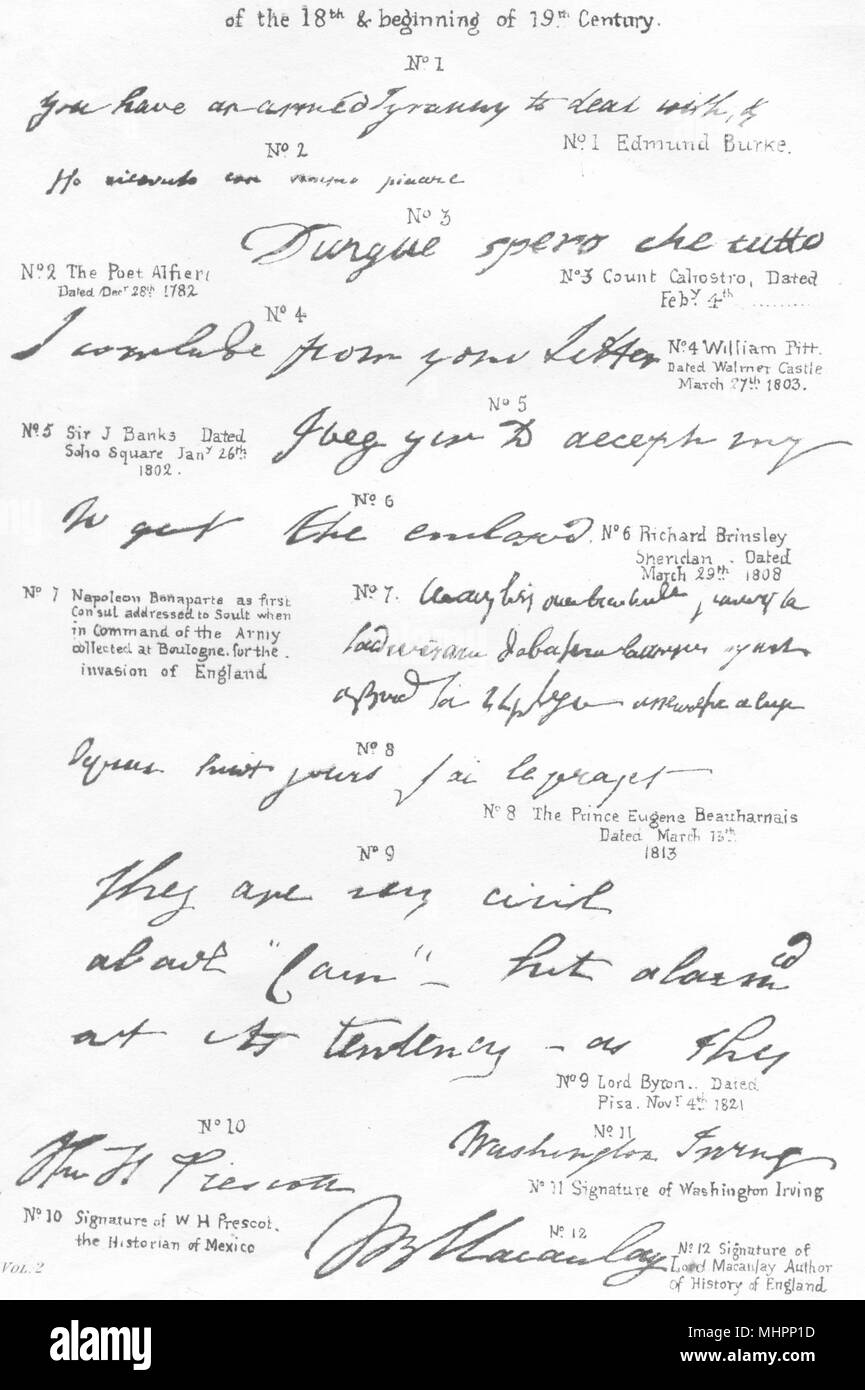 of the 18th & beginning of 19th Century.
No 1
you have an armed Tyranny to deal with, &
No 1 Edmund Burke.
No 2
Ho ricevuto con sommo piacere
No 3
Dunque spero che tutto
No 2 The Poet Alfieri
Dated Decr 28th 1782
No 3 Count Caliostro, Dated
Feby 4th ..........
No 4
I conclude from your Letter
No 4 William Pitt.
Dated Walmer Castle
March 27th 1803.
No 5
No. 5 Sir J Banks Dated
Soho Square Jany 26th
1802.
I beg you to accept my
No 6
to get the enclosed.
No 6 Richard Brinsley
Sheridan. Dated
March 29th 1808
No 7 Napoleon Bonaparte as first
Consul addressed to Soult when
in Command of the Army
collected at Boulogne. for the.
invasion of England
No 7.
No 8
jours j'ai le projet
No 8 The Prince Eugene Beauharnais
Dated March 13th
1813
No 9
They are very civil
about "Cain" - but alarmed
at its tendency - as they
No 9 Lord Byron.. Dated
Pisa. Novr 4th 1821
No 10
Wm H Prescott
No 11
Washington Irving
No 11 Signature of Washington Irving
No 10 Signature of W H Prescot.
the Historian of Mexico
No 12
TB Macaulay
No 12 Signature of
Lord Macaulay Author
of History of England
VOL. 2
alamy
Image ID: MHPP1D
www.alamy.com